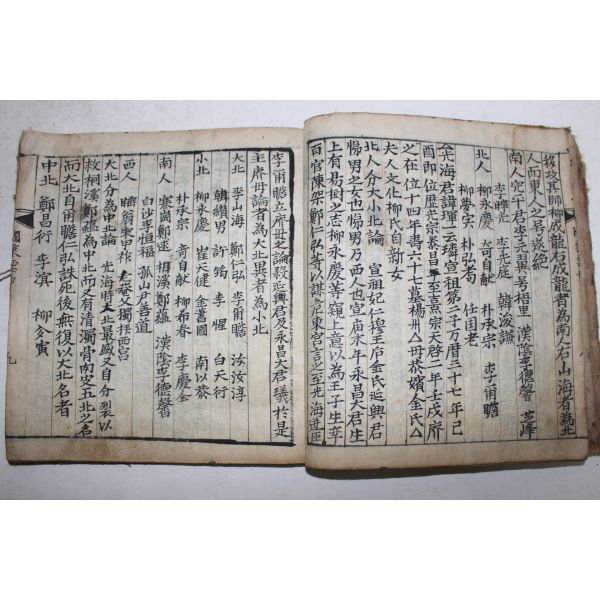 投攻其師柳成龍右成龍者為南人右山海者為北
人而東人之号遂絶
南人 完平君李元翼号梧里 漢陰李德馨 芝峰
李睟光 李光庭 韓浚謙
北人 柳永慶 奇自献 朴承宗 李甫瞻
柳夢寅 朴弘耈 任国老
光海君諱琿 宣祖第二子万曆三十七年己
酉即位歴光宗泰昌 至熹宗天啓 年壬戌廃
之在位十四年壽六十七墓楊州 母恭嬪金氏
夫人文化柳氏自新女
北人分大小北論 宣祖妃仁穆王后金氏延興君
悌男之女也悌男乃西人也宣庙末年永昌大君生
上有易樹之志柳永慶等窺上意以為王子生卒
百官陳架鄭仁弘等以謀危東宮言之至光海世臣
李甫瞻立廃母之論殺延興君及永昌大君㼁於是
主廃母論者為大北異者為小北
大北 李山海 鄭仁弘 李甫瞻 汝淳
韓纘男 許筠 李惺 白天衍
小北 柳永慶 崔天健 金藎國 南以恭
朴承宗 奇自献 柳希春 李慶全
南人 寒岡鄭逑 桐溪鄭蘊 漢陰李德馨
白沙李恒福 孤山尹善道
西人
大北分為中北論 光海時大北最盛又自分裂以
桐溪鄭蘊為中北而又有清濁骨肉皮五北之名
而大北自甫瞻仁弘誅死後無復以大北名者
中北 鄭昌衍 李溟 柳夢寅